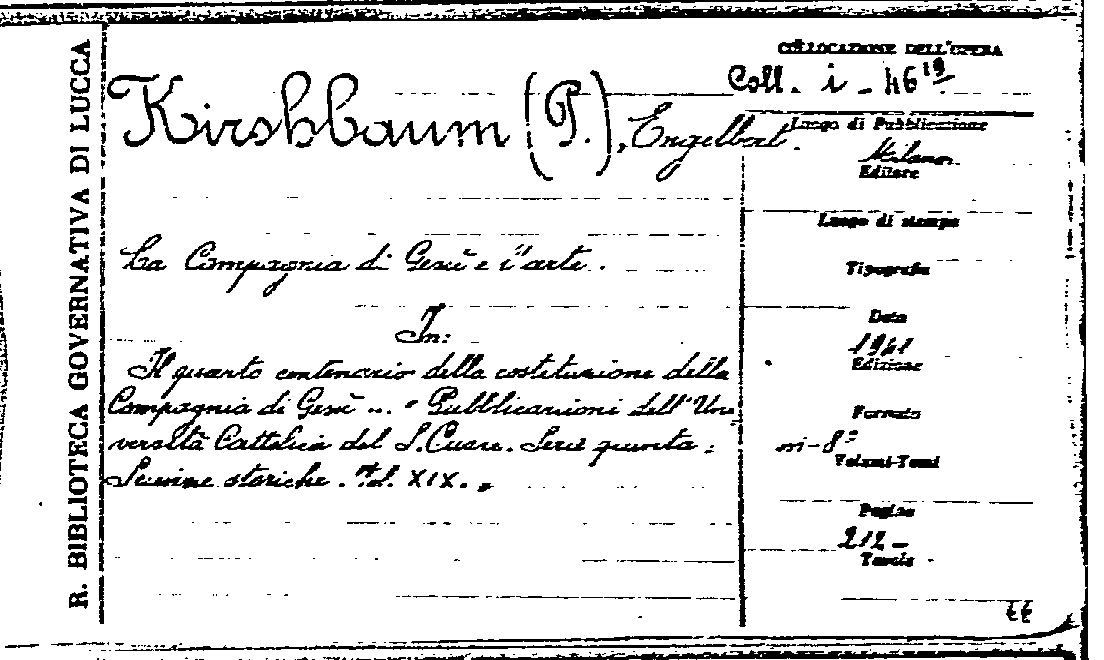 R. BIBLIOTECA GOVERNATIVA DI LUCCA
COLLOCAZIONE DELL'OPERA
Coll. i - 46¹⁹
Kirshbaum (P.), Engelbert.
Luogo di Pubblicazione
Milano
Editore
Luogo di stampa
La Compagnia di Gesù e l'arte.
Tipografia
In:
Data
1941
Edizione
Il quarto centenario della costituzione della
Compagnia di Gesù ... " Pubblicazioni dell'Uni
versità Cattolica del S. Cuore. Serie quinta:
Scienze storiche. Vol. XIX. "
Formato
in-8°
Volumi-Tomi
Pagine
212 -
Tavole